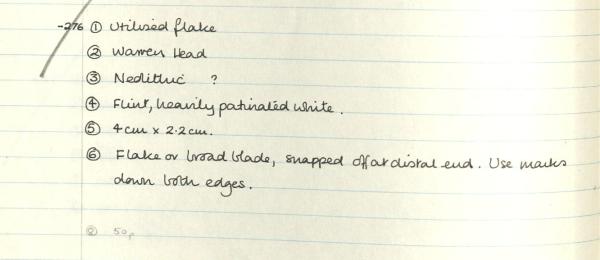 -276 ① Utilised flake
② Warren Head
③ Neolithic ?
④ Flint, heavily patinated white.
⑤ 4cm x 2.2cm.
⑥ Flake or broad blade, snapped off at distal end. Use marks
down both edges.
② 50p